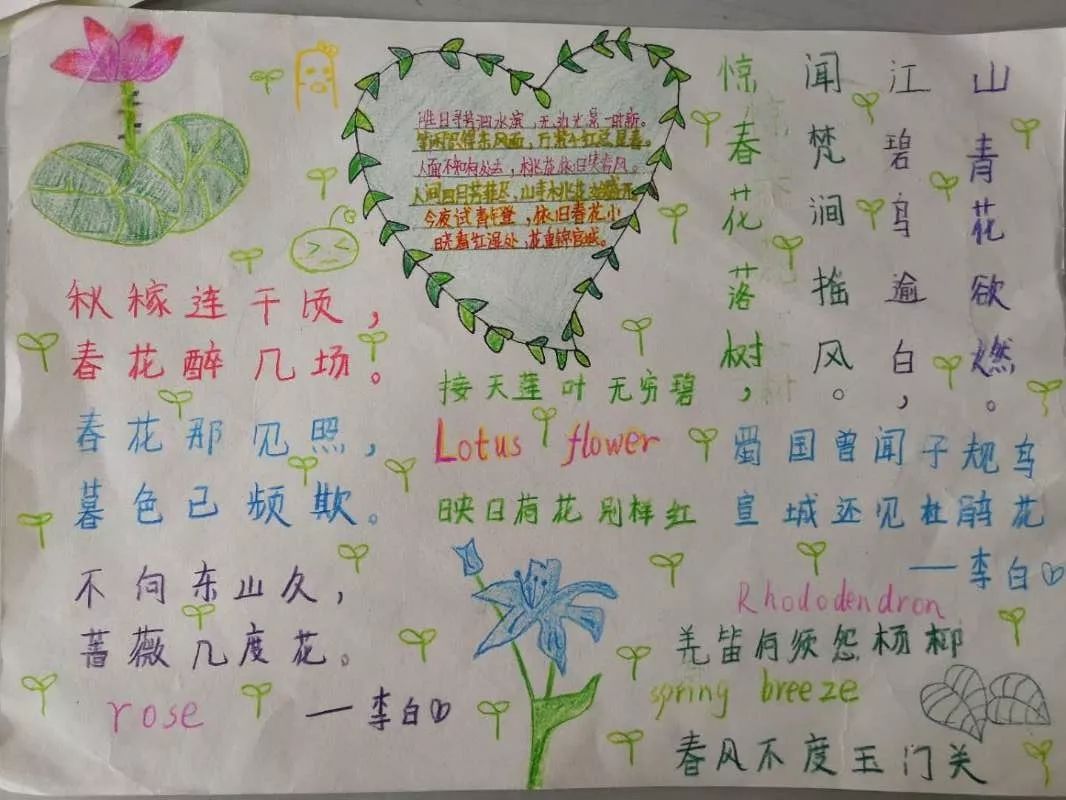 胜日寻芳泗水滨,无边光景一时新。
等闲识得东风面,万紫千红总是春。
人面不知何处去,桃花依旧笑春风。
人间四月芳菲尽,山寺桃花始盛开
今夜试青年登,依旧春花小
晓看红湿处,花重锦官城。
惊春花落树,
闻梵涧摇风。
江碧鸟逾白,
山青花欲燃。
秋稼连千顷,
春花醉几场。
春花那见照,
暮色已频欺。
不向东山久,
蔷薇几度花。
rose ——李白
接天莲叶无穷碧
Lotus flower
映日荷花别样红
蜀国曾闻子规鸟
宣城还见杜鹃花
——李白
Rhododendron
羌笛何须怨杨柳
spring breeze
春风不度玉门关